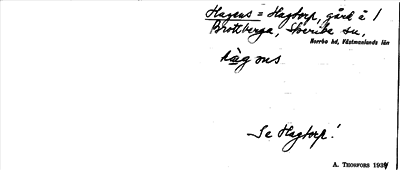 Hagens = Hagtorp, gård å 1
Brottberga, Skerike sn,
Norrbo hd, Västmanlands län
hàg ɷns
Se Hagtorp!
A. THORFORS 1934